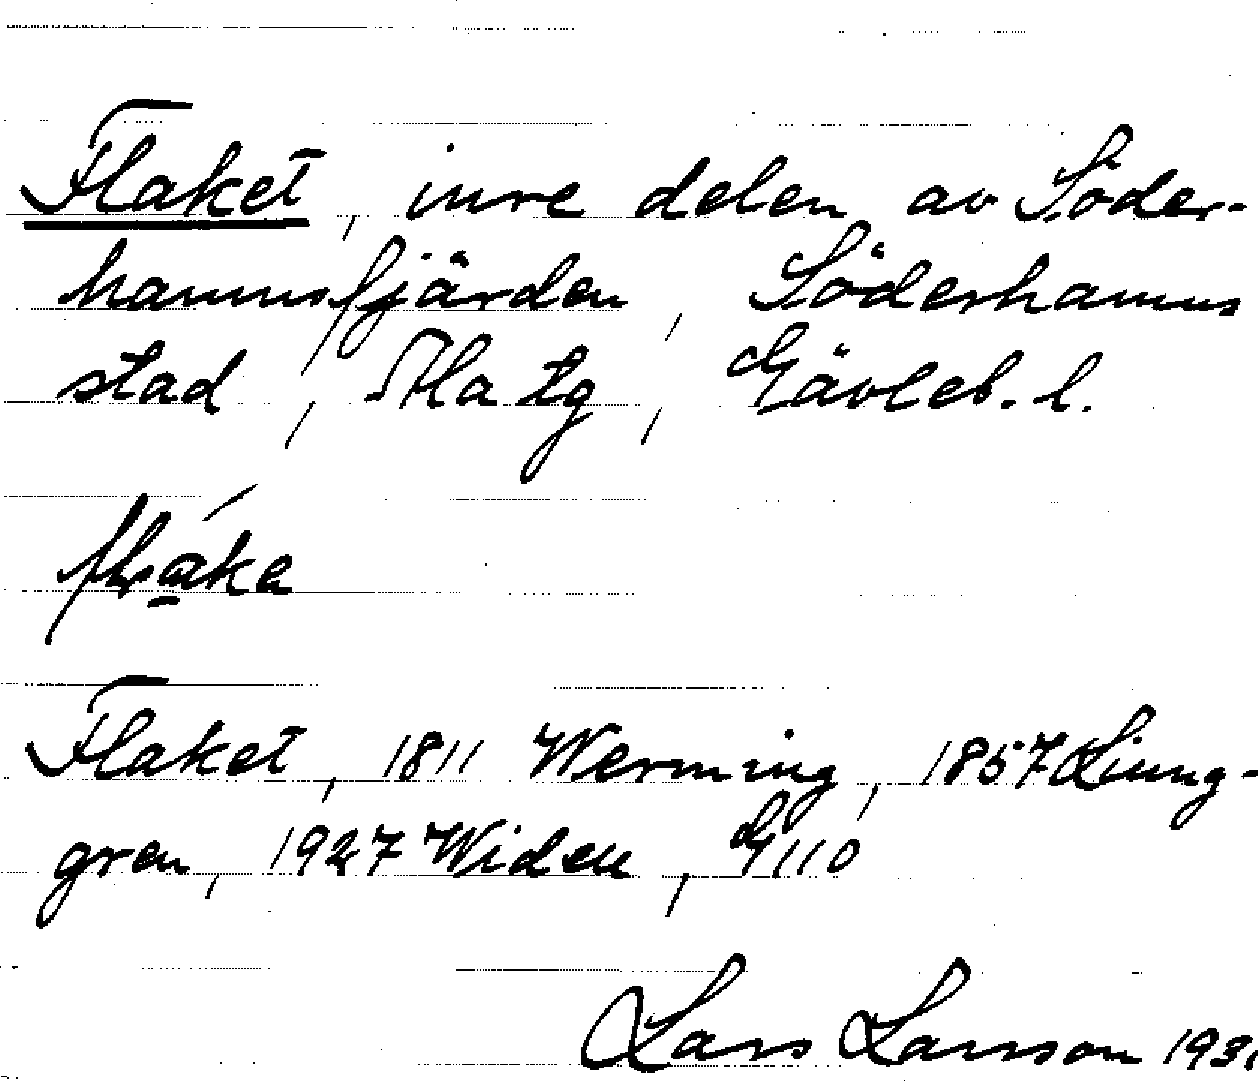 Flaket, inre delen av Söder-
hamnsfjärden, Söderhamns
stad, Ala tg, Gävleb. l.
Flaket, 1811 Werming, 1857 Liung-
gren, 1927 Widen, G 110
Lars Larsson